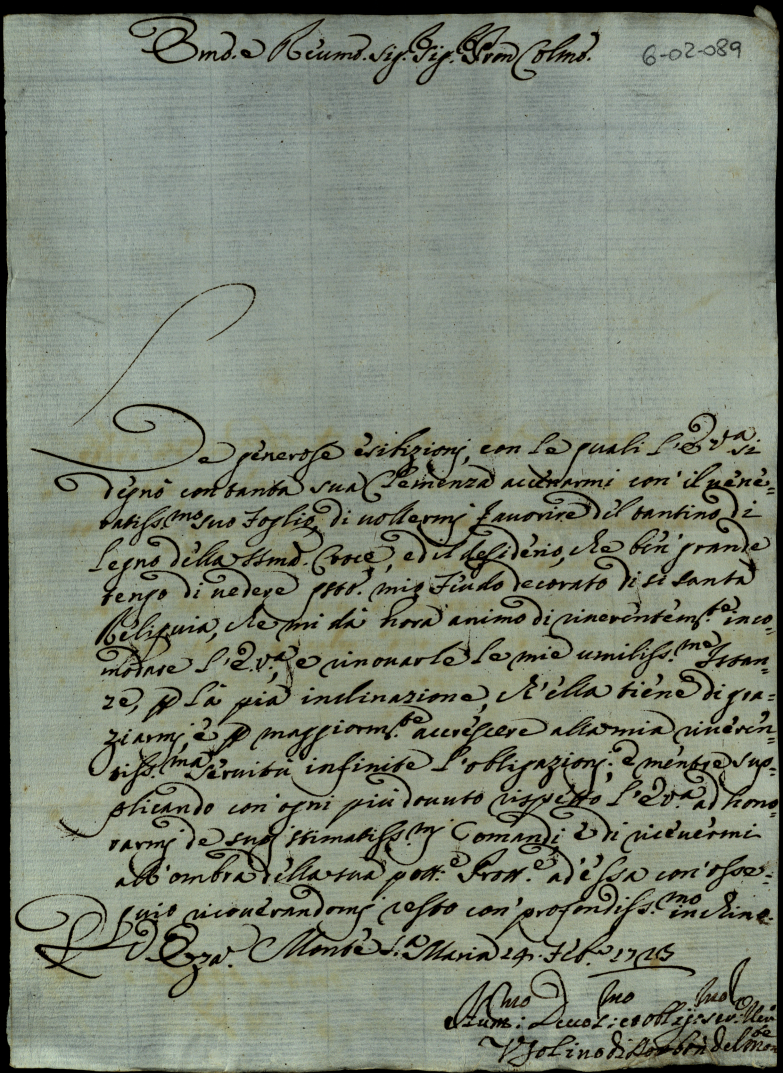 Emo. e Reũmo. Sig.r Sig.r Pron Colmo. 6-02-089
Le generose esibizioni, con le quali l'E.V.a si
degnò con tanta sua Clemenza accenarmi con' il uene=
ratiss.mo suo foglio, di uollermi fauorire del tantino di
Legno della SSma. Croce, ed il desiderio, che ben' grande
tengo di uedere mio Feudo decorato di si santa
Reliquia, che mi dà hora animo di riuerentem.te inco=
modare l'E.V.a, e rinouarle le mie umiliss.me Istan=
ze, p la pia inclinazione, ch'ella tiene di gra=
ziarmi, e p maggiorm.te accrescere alla mia riueren=
tiss.ma seruitù infinite l'obligazioni: e mentre sup=
plicando con' ogni più douuto rispetto, l'E.V.a ad hono=
rarmi de suoi stimatiss.mi Comandi e di riceuermi
all'ombra della sua pott.e Prott.e, ad essa con' osse=
quio ricouerandomi resto con' profondiss.mo inchino.
D. E.za. Monte S.a Maria 24 Feb.o 1713
Hum:mo Deuo:mo et obligmo ser.
Vgolino di Borbon del Mon